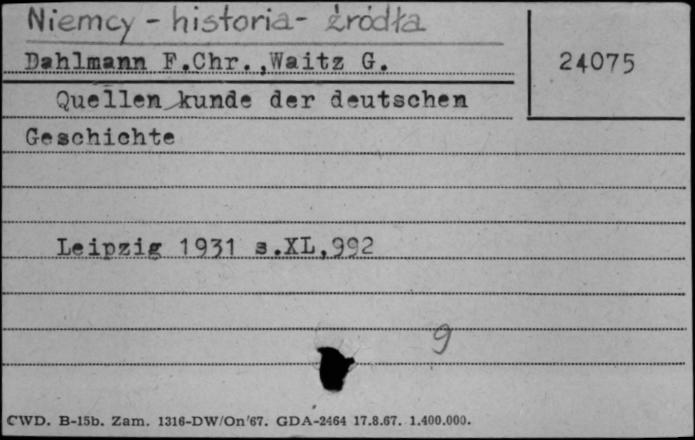 Niemcy - historia - źródła
Dahlmann F.Chr.,Waitz G.
24075
Quellen kunde der deutschen
Geschichte
Leipzig 1931 s.XL,992
9
CWD. B-15b. Zam. 1316-DW/On/67. GDA-2464 17.8.67. 1.400.000.